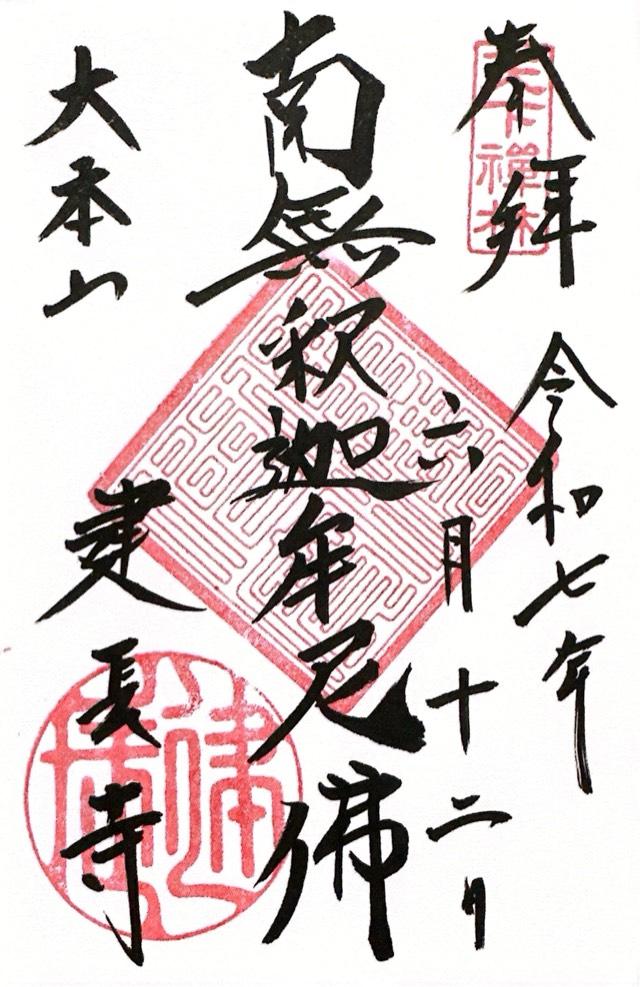 奉拝
天下禪林
令和七年
六月十二日
南無釈迦牟尼佛
大本山
建長寺